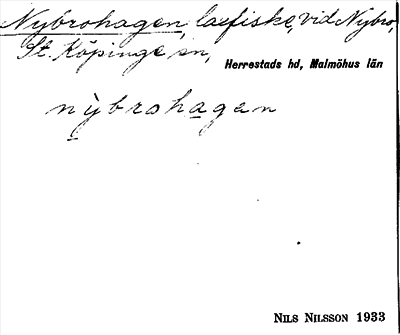 Nybrohagen, laxfiske, vid Nybro,
St. Köpinge sn,
Herrestads hd, Malmöhus län
nỳbrohagen
NILS NILSSON 1933